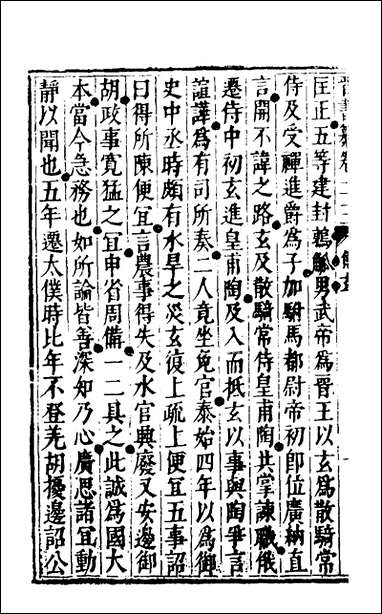 匡正五等建封鶉觚男武帝為晉王以玄為散騎常
侍及受禪進爵為子加駙馬都尉帝初即位廣納直
言開不諱之路玄及散騎常侍皇甫陶共掌諫職俄
遷侍中初玄進皇甫陶及入而抵玄以事與陶爭言
諠譁為有司所奏二人竟坐免官泰始四年以為御
史中丞時頗有水旱之災玄復上疏上便宜五事詔
曰得所陳便宜言農事得失及水官興廢又安邊御
胡政事寬猛之宜申省周備一二具之此誠為國大
本當今急務也如所論皆善深知乃心廣思諸宜動
靜以聞也五年遷太僕時比年不登羌胡擾邊詔公